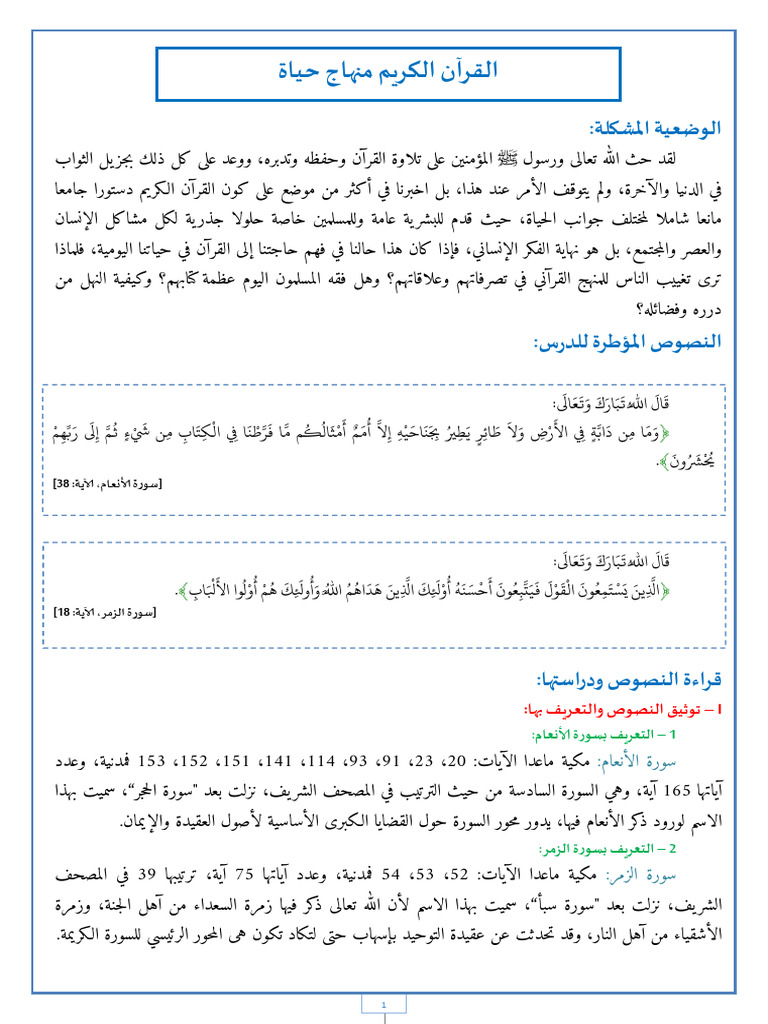 القرآن الكريم منهاج حياة
الوضعية المشكلة:
لقد حث الله تعالى ورسول ﷺ المؤمنين على تلاوة القرآن وحفظه وتدبره، ووعد على كل ذلك بجزيل الثواب
في الدنيا والآخرة، ولم يتوقف الأمر عند هذا، بل اخبرنا في أكثر من موضع على كون القرآن الكريم دستورا جامعا
مانعا شاملا لمختلف جوانب الحياة، حيث قدم للبشرية عامة وللمسلمين خاصة حلولا جذرية لكل مشاكل الإنسان
والعصر والمجتمع، بل هو نهاية الفكر الإنساني، فإذا كان هذا حالنا في فهم حاجتنا إلى القرآن في حياتنا اليومية، فلماذا
ترى تغييب الناس للمنهج القرآني في تصرفاتهم وعلاقاتهم؟ وهل فقه المسلمون اليوم عظمة كتابهم؟ وكيفية النهل من
درره وفضائله؟
النصوص المؤطرة للدرس:
قَالَ اللهُ تَبَارَكَ وَتَعَالَى:
﴿وَمَا مِن دَابَّةٍ فِي الأَرْضِ وَلاَ طَائِرٍ يَطِيرُ بِجَنَاحَيْهِ إِلاَّ أُمَمٌ أَمْثَالُكُم مَّا فَرَّطْنَا فِي الْكِتَابِ مِن شَيْءٍ ثُمَّ إِلَى رَبِّهِمْ
يُحْشَرُونَ﴾.
[سورة الأنعام، الآية: 38]
قَالَ اللهُ تَبَارَكَ وَتَعَالَى:
﴿الَّذِينَ يَسْتَمِعُونَ الْقَوْلَ فَيَتَّبِعُونَ أَحْسَنَهُ أُوْلَئِكَ الَّذِينَ هَدَاهُمُ اللهُ وَأُولَئِكَ هُمْ أُوْلُوا الأَلْبَابِ﴾.
[سورة الزمر، الآية: 18]
قراءة النصوص ودراستها:
I – توثيق النصوص والتعريف بها:
1 – التعريف بسورة الأنعام:
سورة الأنعام: مكية ماعدا الآيات: 20، 23، 91، 93، 114، 141، 151، 152، 153 فمدنية، وعدد
آياتها 165 آية، وهي السورة السادسة من حيث الترتيب في المصحف الشريف، نزلت بعد "سورة الحجر“، سميت بهذا
الاسم لورود ذكر الأنعام فيها، يدور محور السورة حول القضايا الكبرى الأساسية لأصول العقيدة والإيمان.
2 – التعريف بسورة الزمر:
سورة الزمر: مكية ماعدا الآيات: 52، 53، 54 فمدنية، وعدد آياتها 75 آية، ترتيبها 39 في المصحف
الشريف، نزلت بعد "سورة سبأ“، سميت بهذا الاسم لأن الله تعالى ذكر فيها زمرة السعداء من آهل الجنة، وزمرة
الأشقياء من آهل النار، وقد تحدثت عن عقيدة التوحيد بإسهاب حتى لتكاد تكون هى المحور الرئيسي للسورة الكريمة.
1